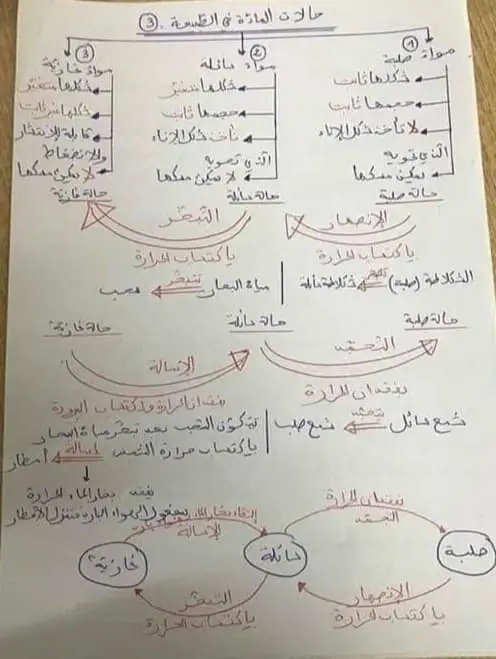 حالات المادة في الطبيعة . 3
1 مواد صلبة
شكلها ثابت
حجمها ثابت
لا تأخذ شكل الإناء
الذي تحويه
يمكن مسكها
حالة صلبة
2 مواد سائلة
شكلها متغير
حجمها ثابت
تأخذ شكل الإناء
الذي تحويه
لا يمكن مسكها
حالة سائلة
3 مواد غازية
شكلها متغير
قابلة للانتشار
والانضغاط
لا يمكن مسكها
حالة غازية
الإنصهار
باكتساب الحرارة
التبخر
باكتساب الحرارة
الشكلاطة (صلبة) شكلاطة سائلة
مياه البحار تتبخر سحب
حالة صلبة
حالة سائلة
حالة غازية
التجمد
بفقدان الحرارة
الإسالة
بفقدان الحرارة واكتساب البرودة
شمع سائل يتجمد شمع صلب
تتكون السحب بعد تبخر مياه البحار
باكتساب حرارة الشمس إسالة أمطار
يفقد بخار الماء الحرارة
بمفعول الهواء البارد فتنزل الأمطار
فقدان الحرارة
التجمد
الإسالة
صلبة
سائلة
غازية
الإنصهار
باكتساب الحرارة
التبخر
باكتساب الحرارة